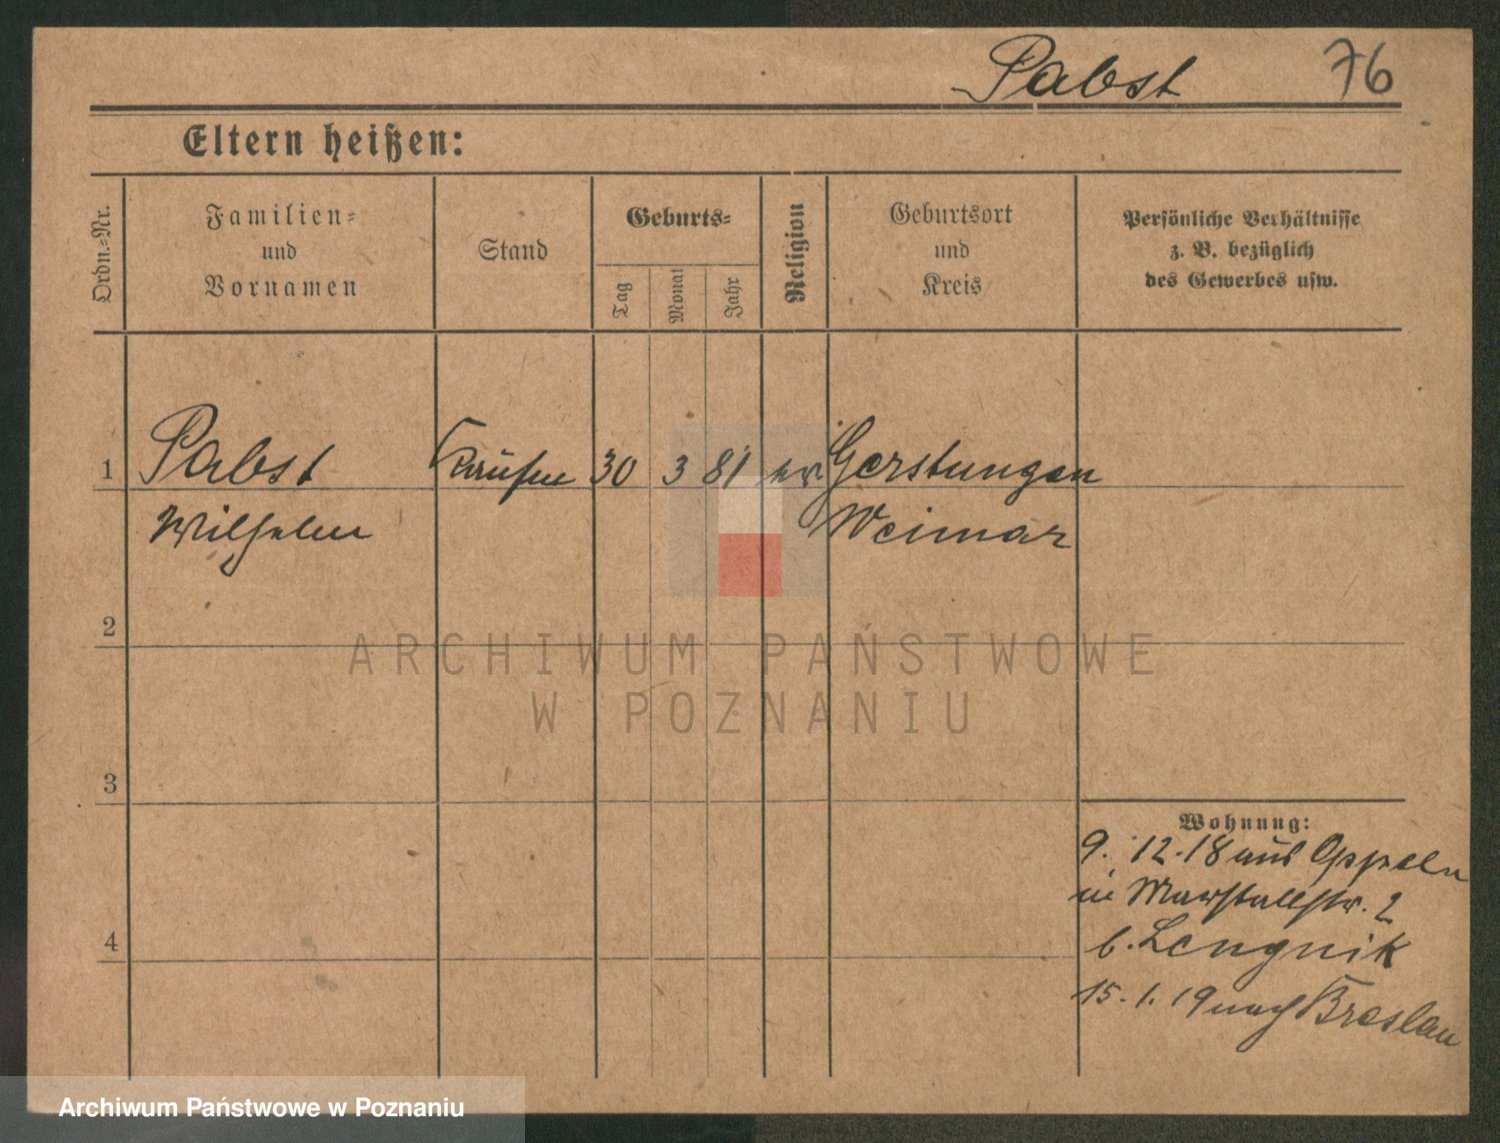 Pabst 76
Eltern heißen:
Ordn.-Nr.
Familien-
und
Vornamen
Stand
Geburts-
Tag
Monat
Jahr
Religion
Geburtsort
und
Kreis
Persönliche Verhältnisse
z. B. bezüglich
des Gewerbes usw.
1 Pabst 30 3 81 ev. Gerstungen
Wilhelm Weimar
2
ARCHIWUM PAŃSTWOWE
W POZNANIU
3
Wohnung:
9. 12. 18 aus Oppeln
in Marstallstr. 2
b. Lengnik
4
15. 1. 19 nach Breslau
Archiwum Państwowe w Poznaniu